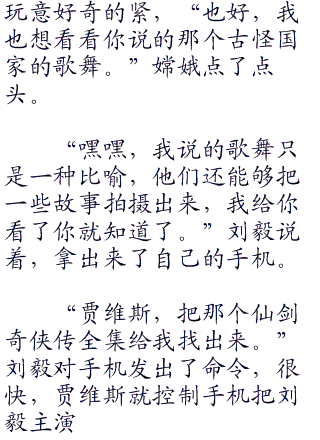 玩意好奇的紧，“也好，我
也想看看你说的那个古怪国
家的歌舞。”嫦娥点了点
头。
“嘿嘿，我说的歌舞只
是一种比喻，他们还能够把
一些故事拍摄出来，我给你
看了你就知道了。”刘毅说
着，拿出来了自己的手机。
“贾维斯，把那个仙剑
奇侠传全集给我找出来。”
刘毅对手机发出了命令，很
快，贾维斯就控制手机把刘
毅主演